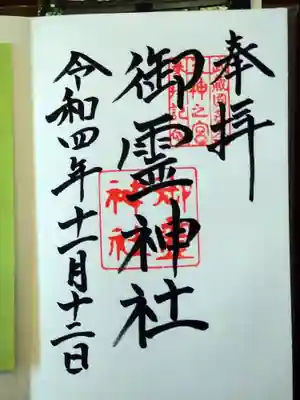 奉拝
御霊神社
令和四年十一月十二日
御霊
神社